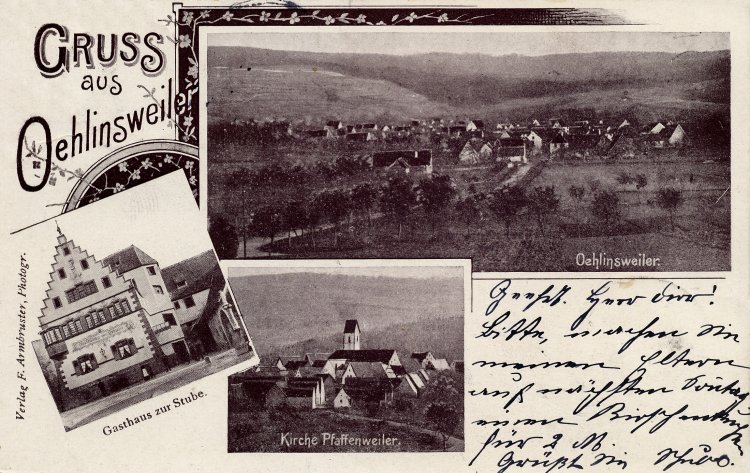 GRUSS
aus
Oehlinsweiler
Oehlinsweiler.
Verlag F. Armbruster, Photogr.
Gasthaus zur Stube.
Kirche Pfaffenweiler.
Geehrt. Herr Dirr!
Bitte, machen Sie
meinen Eltern
auf nächsten Sontag
einen
für 2 M.
Grüßt Sie